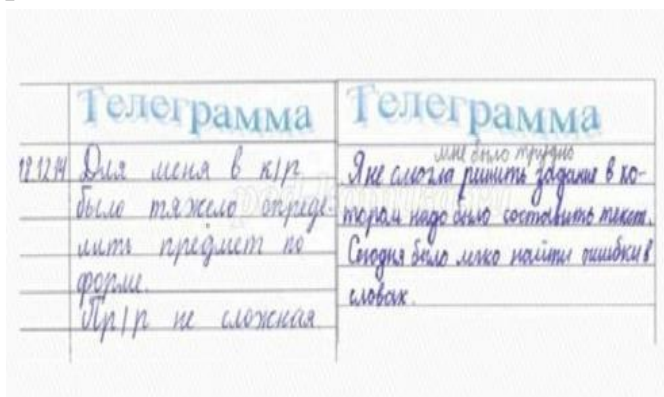 Телеграмма
12.12.14 Для меня в к/р
было тяжело опреде-
лить предмет по
форме.
Пр/р не сложная
Телеграмма
мне было трудно
Я не смогла ришить задание в ко-
тором надо было составить текст.
Сегодня было легко найти ошибки в
словах.